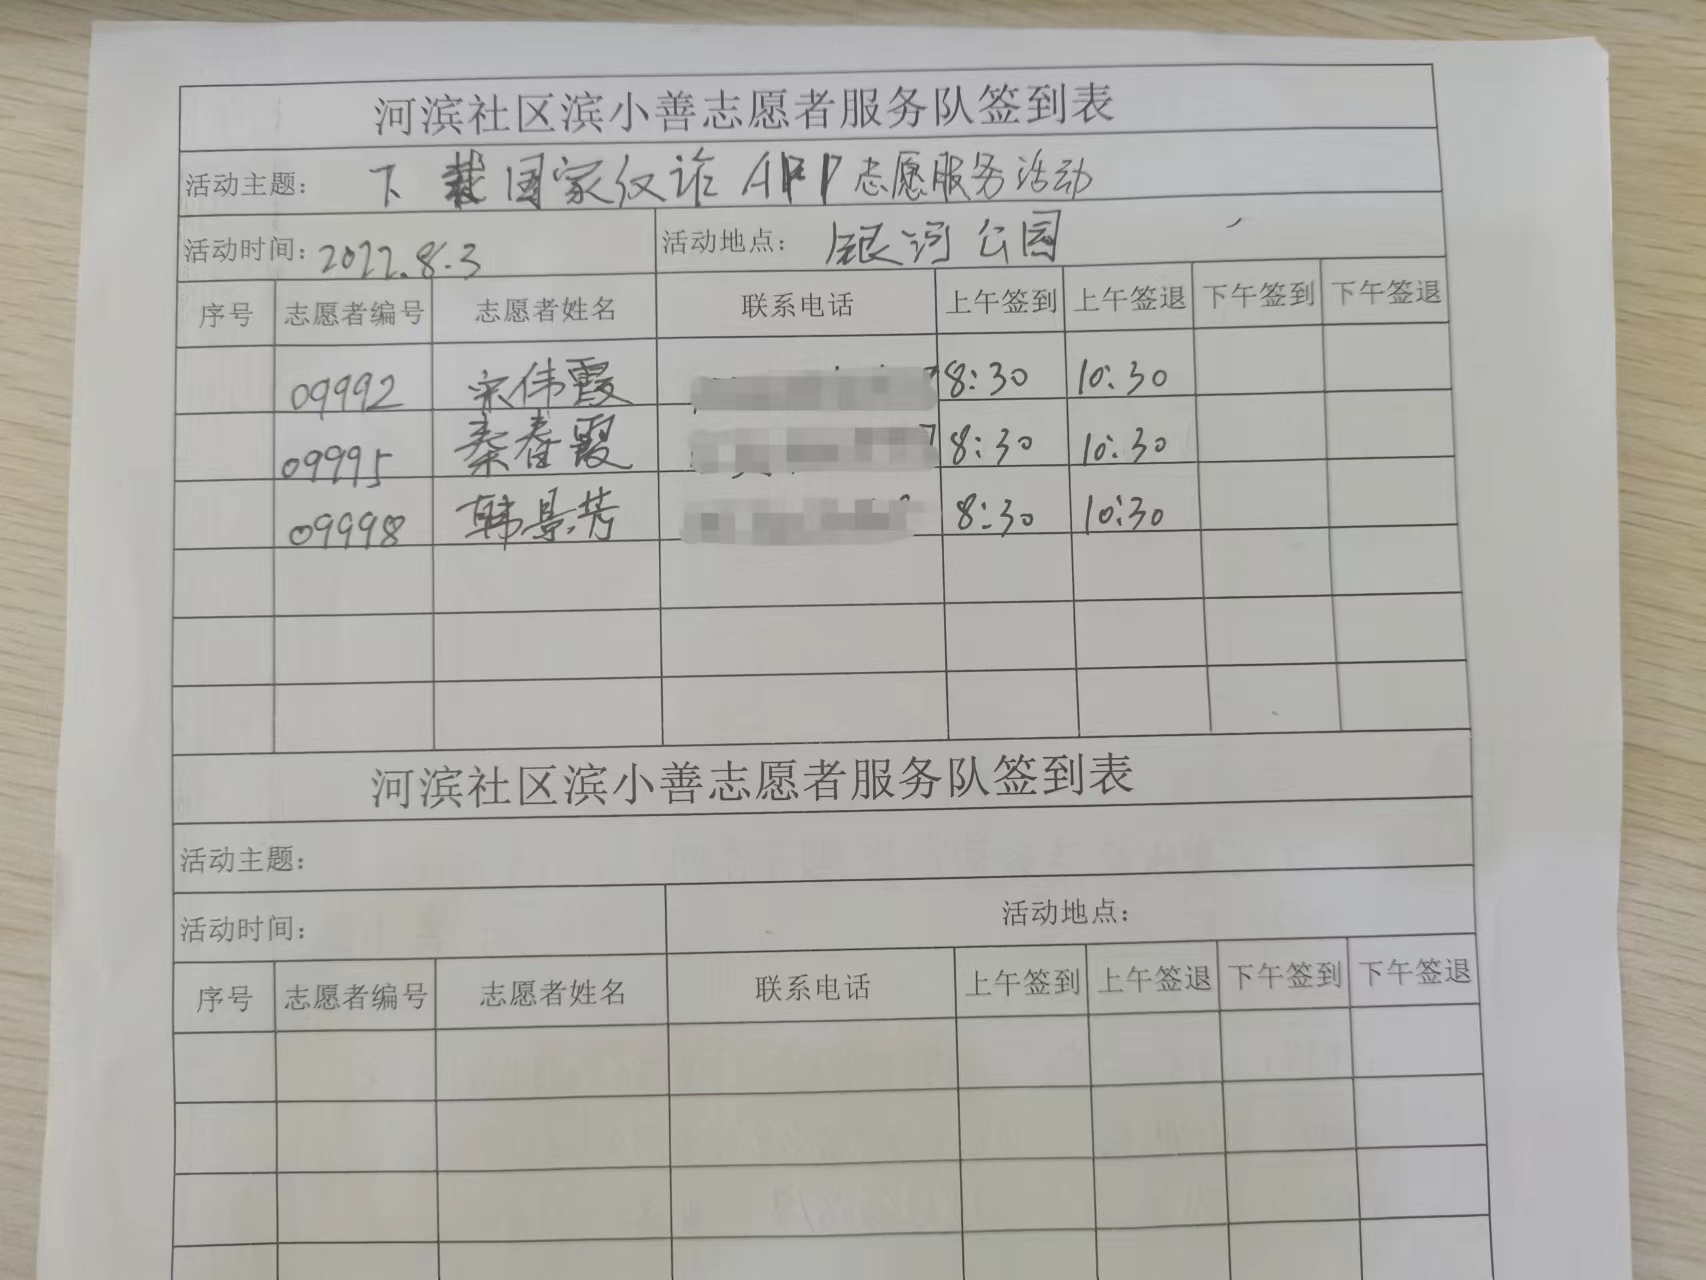 河滨社区滨小善志愿者服务队签到表
活动主题： 下载国家反诈APP志愿服务活动
活动时间：2022.8.3 活动地点： 银河公园
序号 志愿者编号 志愿者姓名 联系电话 上午签到 上午签退 下午签到 下午签退
09992 宋伟霞 8:30 10:30
09995 秦春霞 8:30 10:30
09998 韩景芳 8:30 10:30
河滨社区滨小善志愿者服务队签到表
活动主题：
活动时间： 活动地点：
序号 志愿者编号 志愿者姓名 联系电话 上午签到 上午签退 下午签到 下午签退